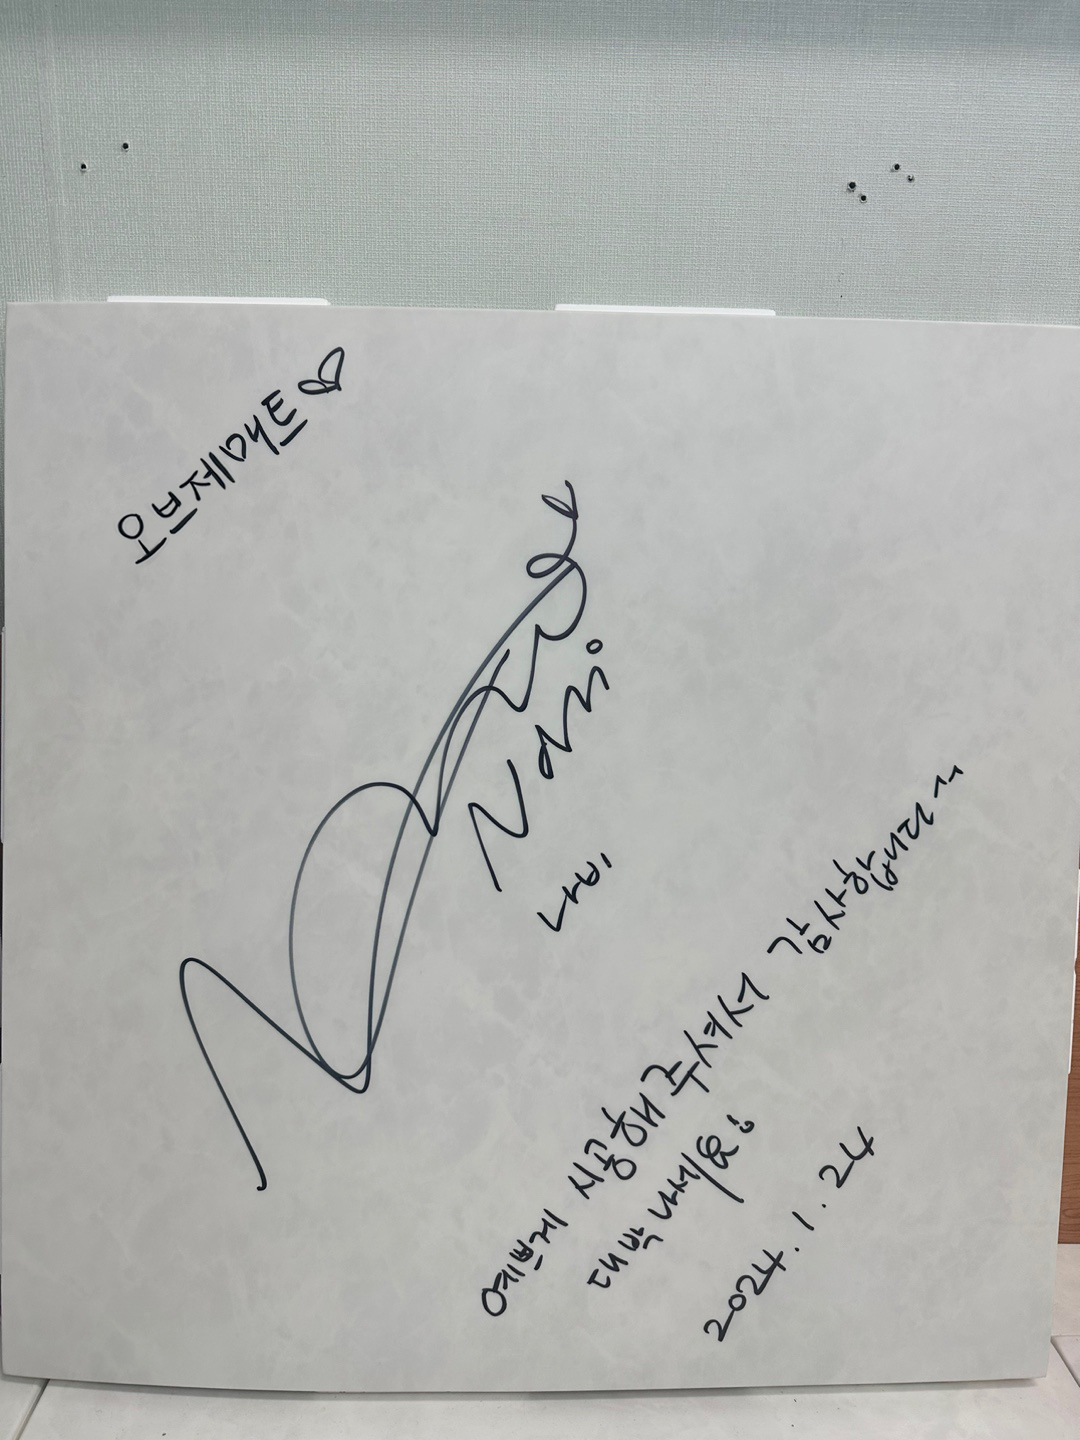 오브제매트♡
Navi
나비
예쁘게 시공해주셔서 감사합니다^^
대박나세요
2024.1.24